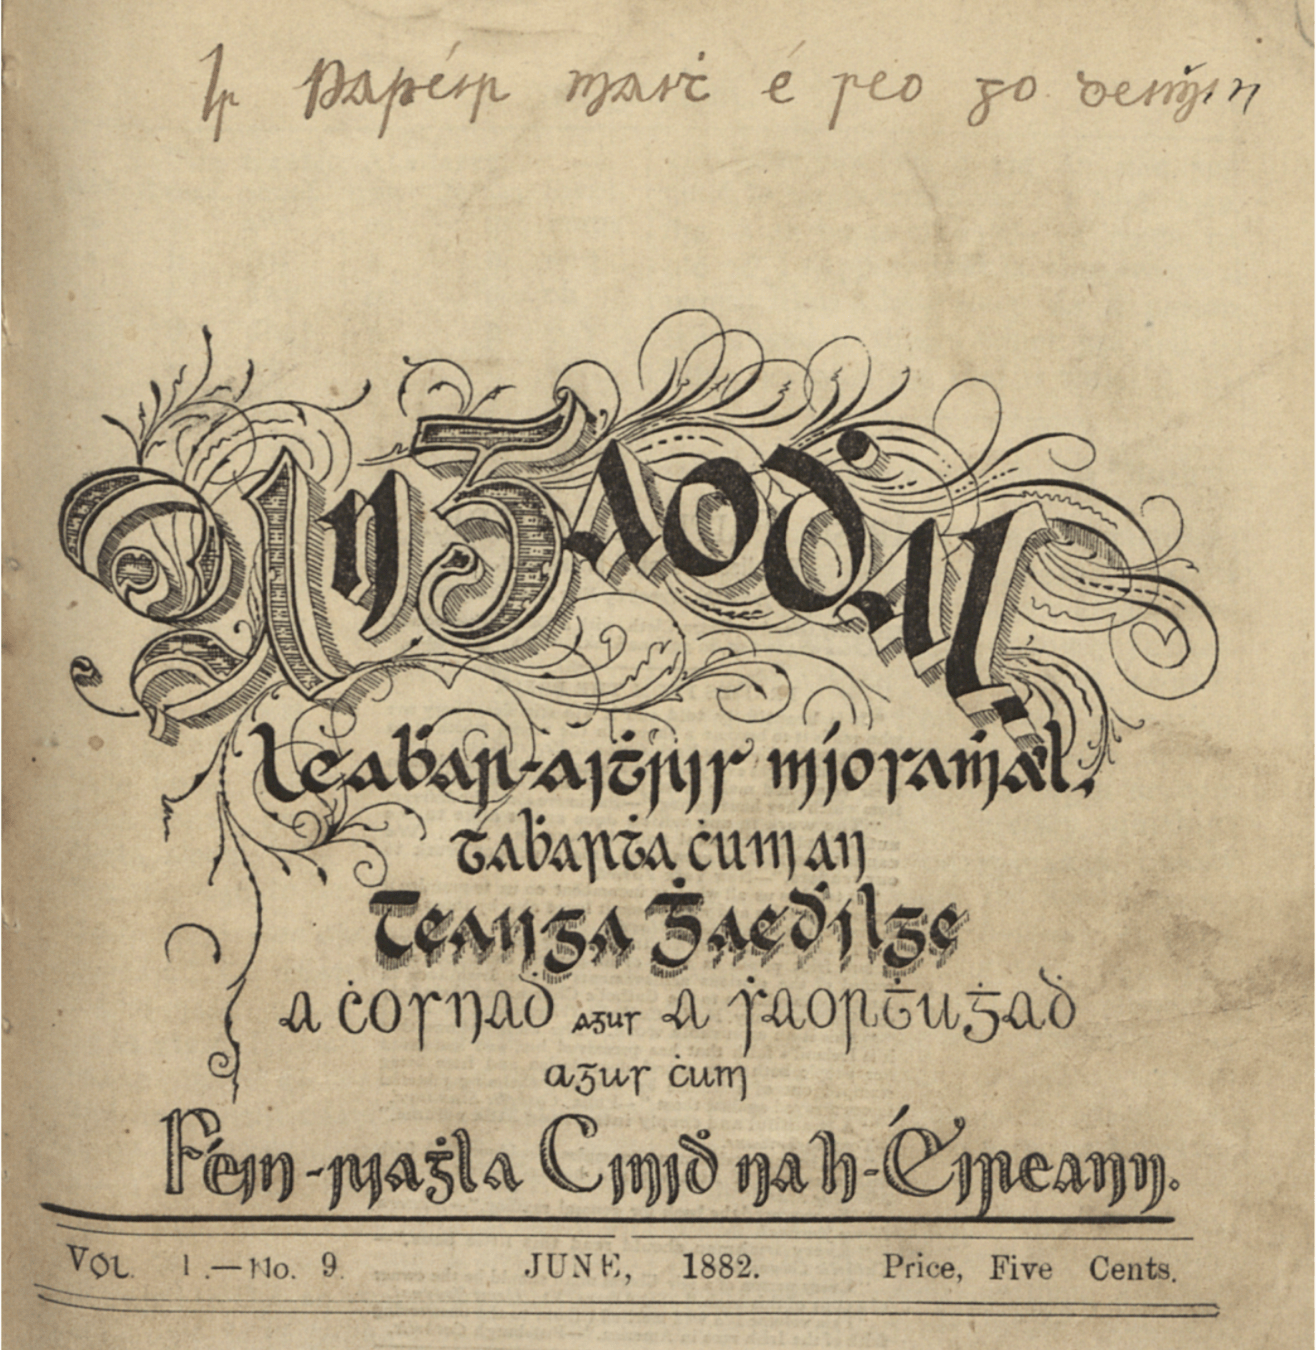 Is Papéir maiṫ é seo go deiṁin
An Gaoḋal
leaḃar-aiṫris míosaṁal,
taḃarṫa ċum an
Teanga Ġaeḋilge
a ċosnaḋ agus a ṡaorṫuġaḋ
agus ċum
Féin-riaġla Ciniḋ na h-Éireann.
VOL. 1.—No. 9. JUNE, 1882. Price, Five Cents.